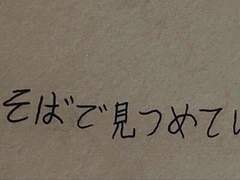 そばで見つめてい